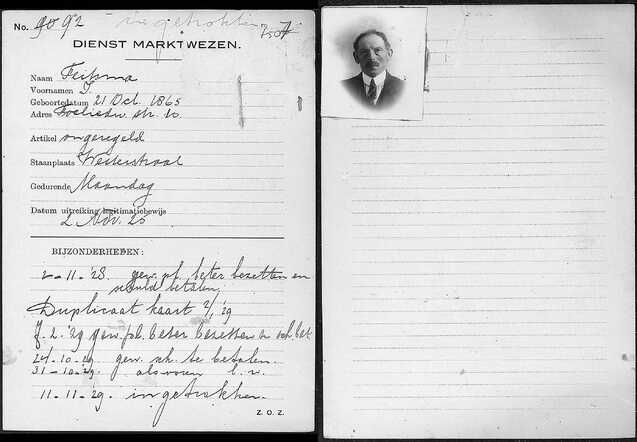 No. 9092 ingetrokken 7507
DIENST MARKTWEZEN.
Naam Feitsma
Voornamen J.
Geboortedatum 21 Oct. 1865
Adres str. 10
Artikel ongeregeld
Staanplaats Westerstraat
Gedurende Maandag
Datum uitreiking legitimatiebewijs
2 Nov. 25
BIJZONDERHEDEN:
2-11.'28. gew. pl. beter bezetten en
schuld betalen.
Duplicaat kaart 2/1 '29
7.2.'29 gew. pl. beter bezetten en sch. bet
24-10-29. gew. sch. te betalen.
31-10-29. als voren
11-11-'29. ingetrokken.
Z.O.Z.